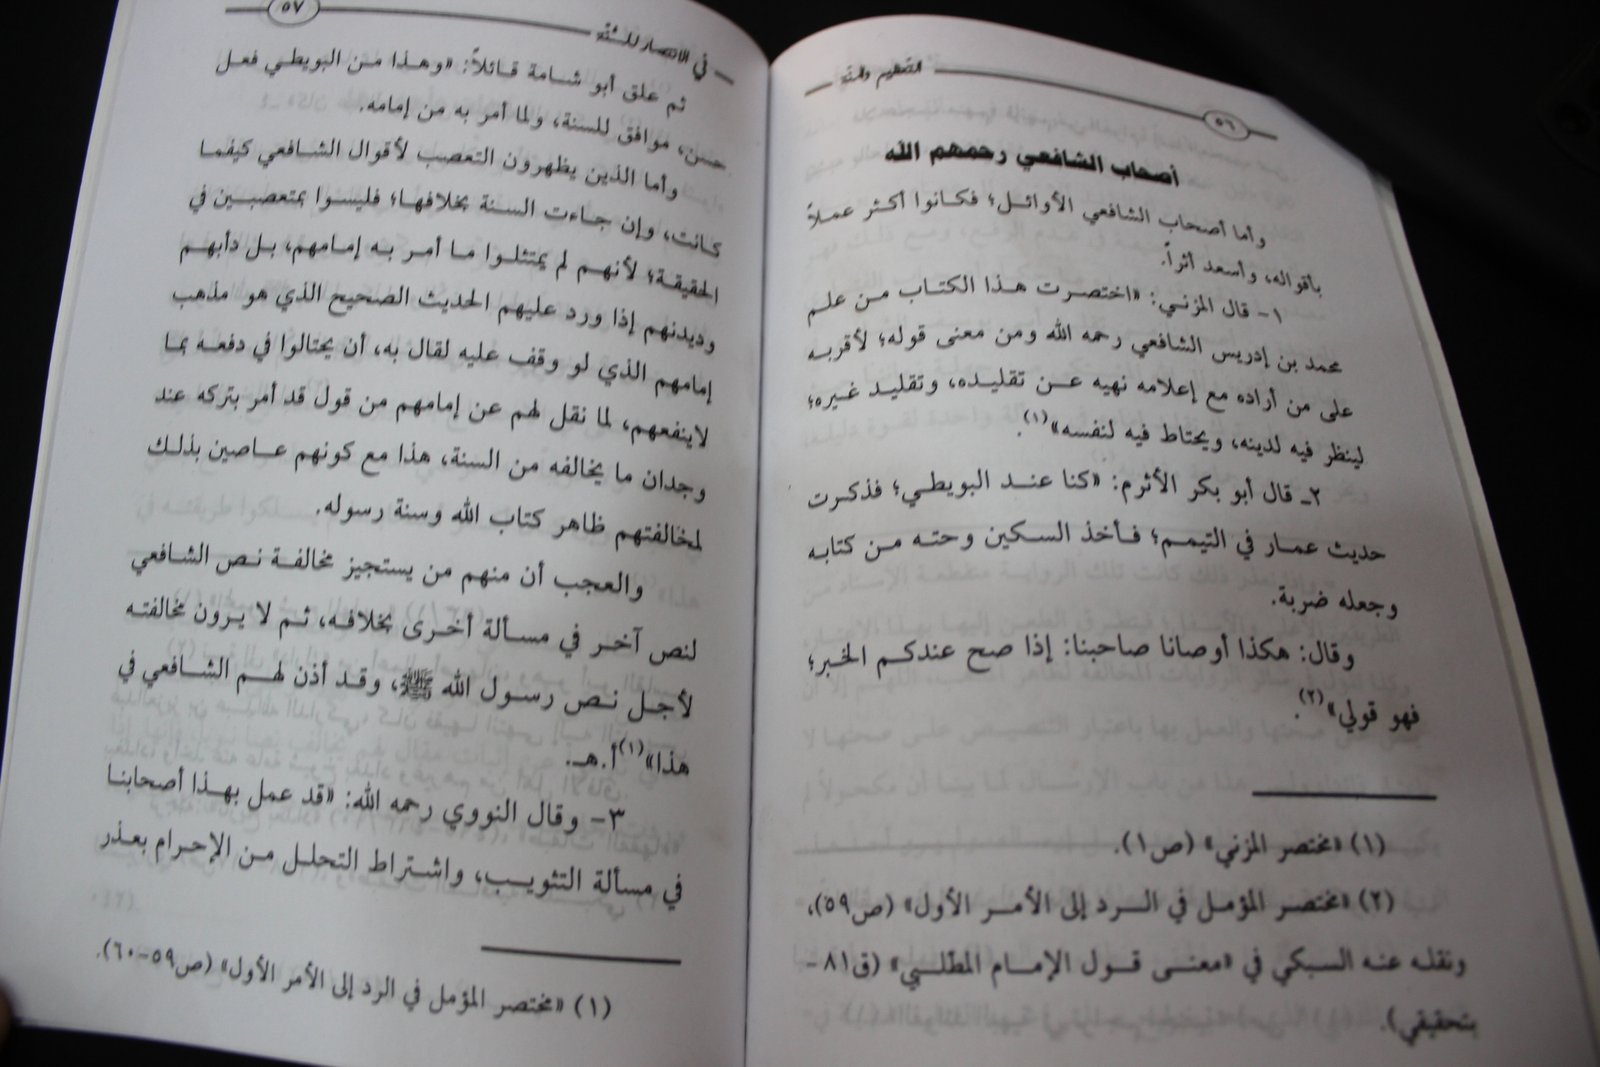 التعظيم والمنة
٥٦
أصحاب الشافعي رحمهم الله
وأما أصحاب الشافعي الأوائل؛ فكانوا أكثر عملاً
بأقواله، وأسعد أثراً.
١- قال المزني: «اختصرت هذا الكتاب من علم
محمد بن إدريس الشافعي رحمه الله ومن معنى قوله؛ لأقربه
على من أراده مع إعلامه نهيه عن تقليده، وتقليد غيره؛
لينظر فيه لدينه، ويحتاط فيه لنفسه»(١).
٢ـ قال أبو بكر الأثرم: «كنا عند البويطي؛ فذكرت
حديث عمار في التيمم؛ فأخذ السكين وحته من كتابه
وجعله ضربة.
وقال: هكذا أوصانا صاحبنا: إذا صح عندكم الخبر؛
فهو قولي»(٢).
(١) «مختصر المزني» (ص١).
(٢) «مختصر المؤمل في الرد إلى الأمر الأول» (ص٥٩)،
ونقله عنه السبكي في «معنى قول الإمام المطلبي» (ق٨١-
بتحقيقي).
في الانتصار للسنة
٥٧
ثم علق أبو شامة قائلاً: «وهذا من البويطي فعل
حسن، موافق للسنة، ولما أمر به من إمامه.
وأما الذين يظهرون التعصب لأقوال الشافعي كيفما
كانت، وإن جاءت السنة بخلافها؛ فليسوا بمتعصبين في
الحقيقة؛ لأنهم لم يمتثلوا ما أمر به إمامهم، بل دأبهم
وديدنهم إذا ورد عليهم الحديث الصحيح الذي هو مذهب
إمامهم الذي لو وقف عليه لقال به، أن يحتالوا في دفعه بما
لاينفعهم، لما نقل لهم عن إمامهم من قول قد أمر بتركه عند
وجدان ما يخالفه من السنة، هذا مع كونهم عاصين بذلك
لمخالفتهم ظاهر كتاب الله وسنة رسوله.
والعجب أن منهم من يستجيز مخالفة نص الشافعي
لنص آخر في مسألة أخرى بخلافه، ثم لا يرون مخالفته
لأجل نص رسول الله ﷺ، وقد أذن لهم الشافعي في
هذا»(١)أ.هـ.
٣- وقال النووي رحمه الله: «قد عمل بهذا أصحابنا
في مسألة التثويب، واشتراط التحلل من الإحرام بعذر
(١) «مختصر المؤمل في الرد إلى الأمر الأول» (ص٥٩-٦٠).